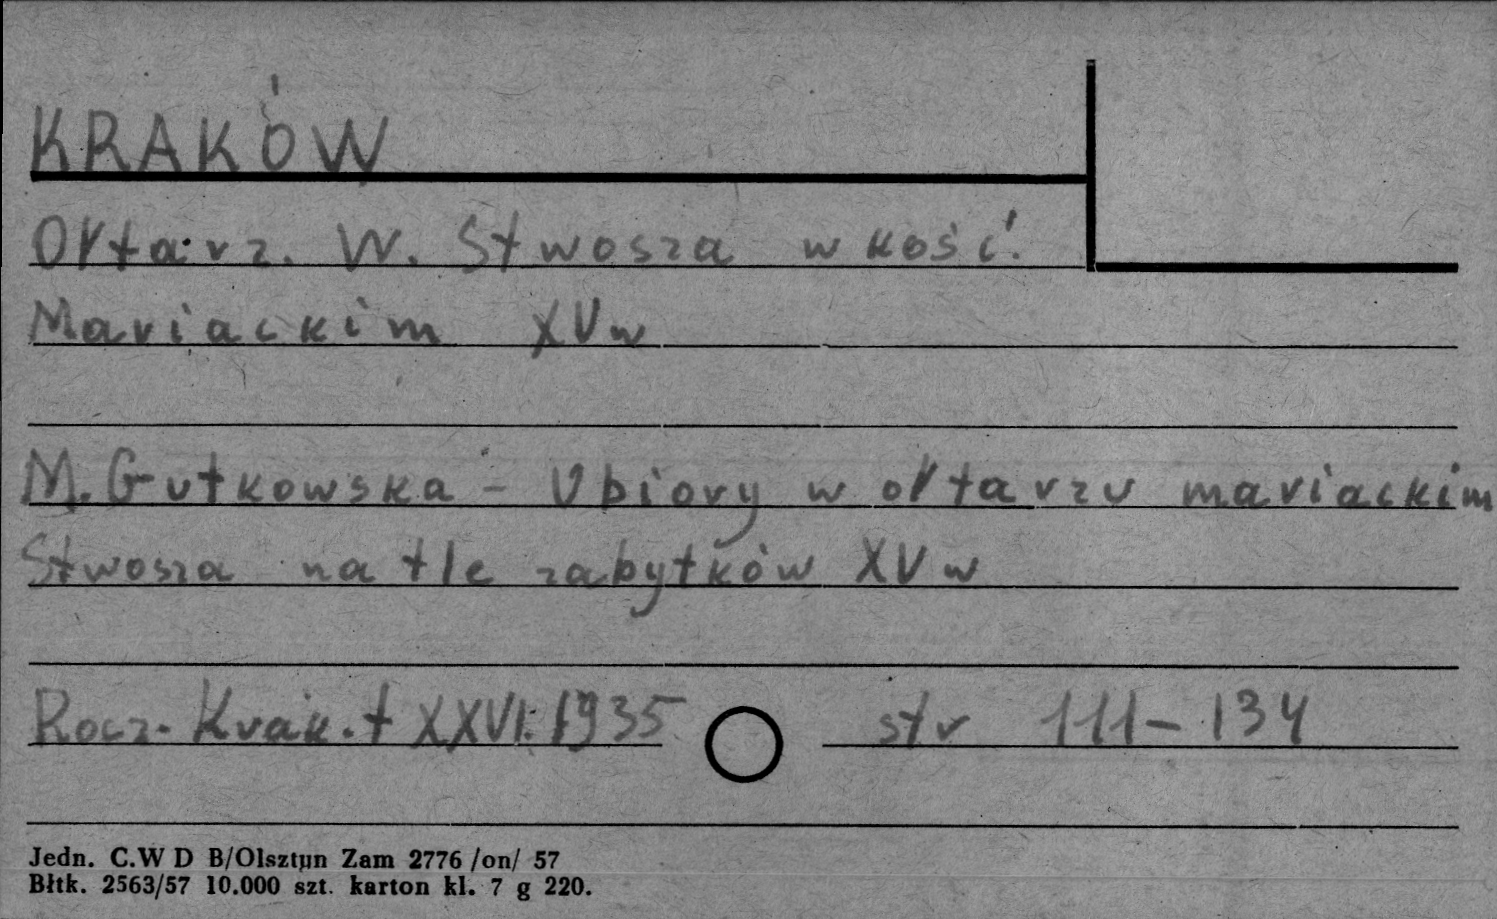 KRAKÓW
Ołtarz. W. Stwosza w kość.
Mariackim XVw
M. Gutkowska - Ubiory w ołtarzu mariackim
Stwosza na tle zabytków XV w
Rocz. Krak. t XXVI. 1935 str 111-134
Jedn. C.W D B/Olsztyn Zam 2776 /on/ 57
Błtk. 2563/57 10.000 szt. karton kl. 7 g 220.